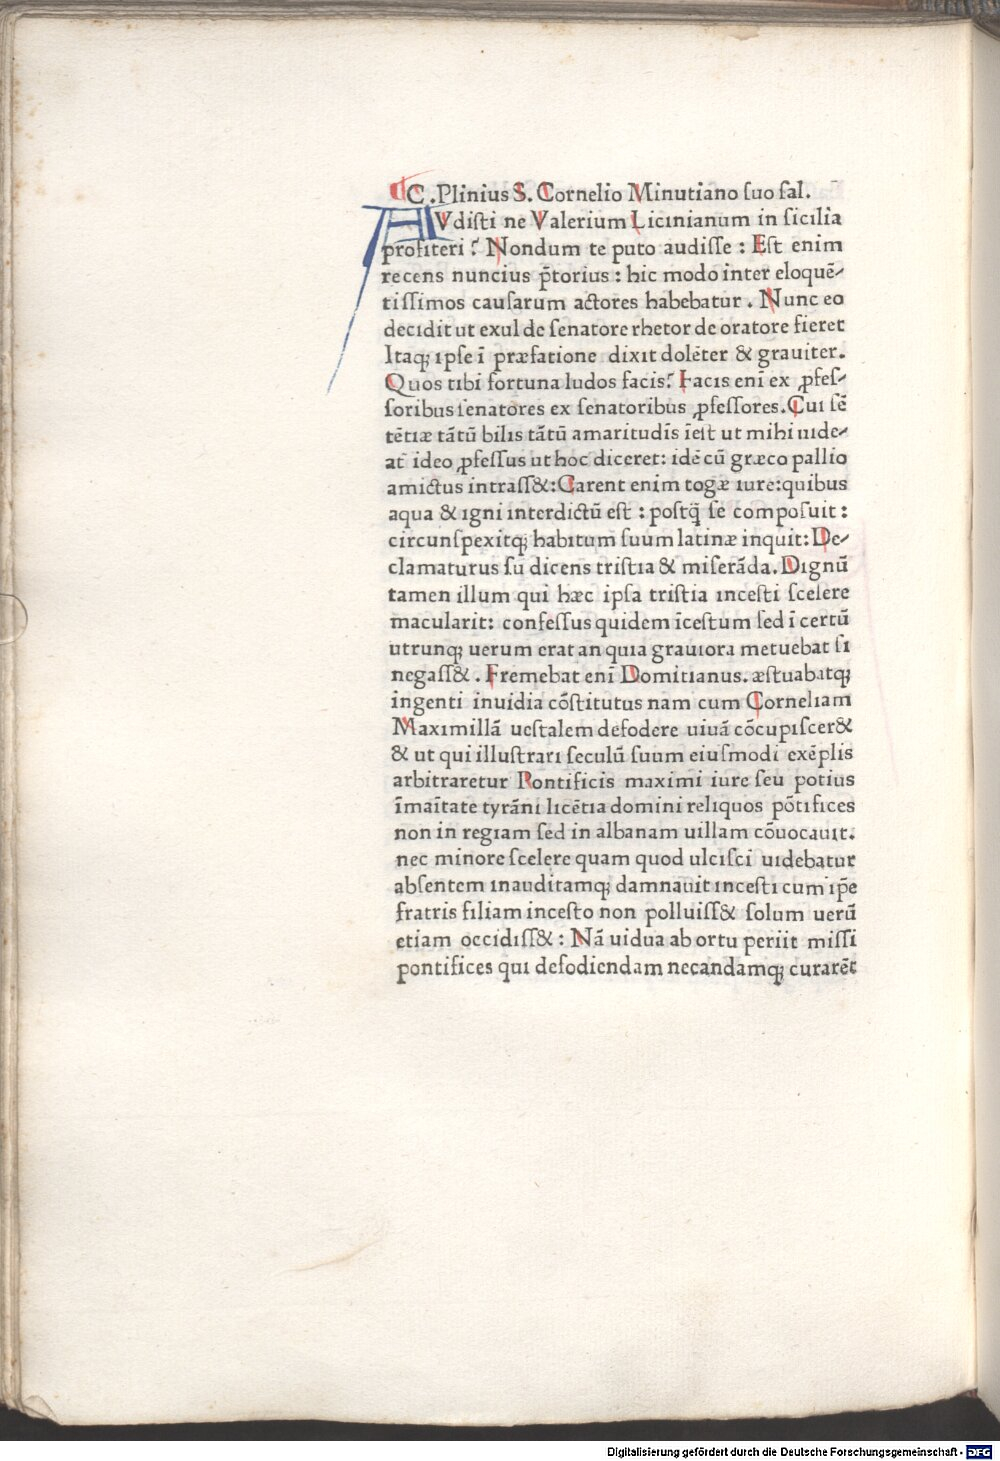 C .Plinius S. Cornelio Minutiano ſuo ſal.
AVdiſti ne Valerium Licinianum in ſicilia
profiteri ? Nondum te puto audiſſe : Eſt enim
recens nuncius p̄torius : hic modo inter eloquē-
tiſſimos cauſarum actores habebatur . Nunc eo
decidit ut exul de ſenatore rhetor de oratore fieret
Itaqꝫ ipſe ī præfatione dixit dolēter & grauiter.
Quos tibi fortuna ludos facis? Facis enī ex ꝓfeſ-
ſoribus ſenatores ex ſenatoribus ꝓfeſſores. Cui ſē
tētiæ tātū bilis tātū amaritudīs īeſt ut mihi uide-
at̄ ideo ꝓfeſſus ut hoc diceret: idē cū græco pallio
amictus intraſſ&: Carent enim togæ iure: quibus
aqua & igni interdictū eſt : poſtq̄ ſe compoſuit :
circunſpexitqꝫ habitum ſuum latinæ inquit: De-
clamaturus ſū dicens triſtia & miſerāda. Dignū
tamen illum qui hæc ipſa triſtia inceſti ſcelere
macularit: confeſſus quidem īceſtum ſed ī certū
utrunqꝫ uerum erat an quia grauiora metuebat ſi
negaſſ& . Fremebat enī Domitianus. æſtuabatqꝫ
ingenti inuidia cōſtitutus nam cum Corneliam
Maximillā ueſtalem defodere uiuā cōcupiſcer&
& ut qui illuſtrari ſeculū ſuum eiuſmodi exēplis
arbitraretur Pontificis maximi iure ſeu potius
īmaītate tyrāni licētia domini reliquos pōtifices
non in regiam ſed in albanam uillam cōuocauit.
nec minore ſcelere quam quod ulciſci uidebatur
abſentem inauditamqꝫ damnauit inceſti cum ip̄e
fratris filiam inceſto non polluiſſ& ſolum uerū
etiam occidiſſ& : Nā uidua abortu periit miſſi
pontifices qui defodiendam necandamqꝫ curarēt
Digitalisierung gefördert durch die Deutsche Forschungsgemeinschaft - DFG